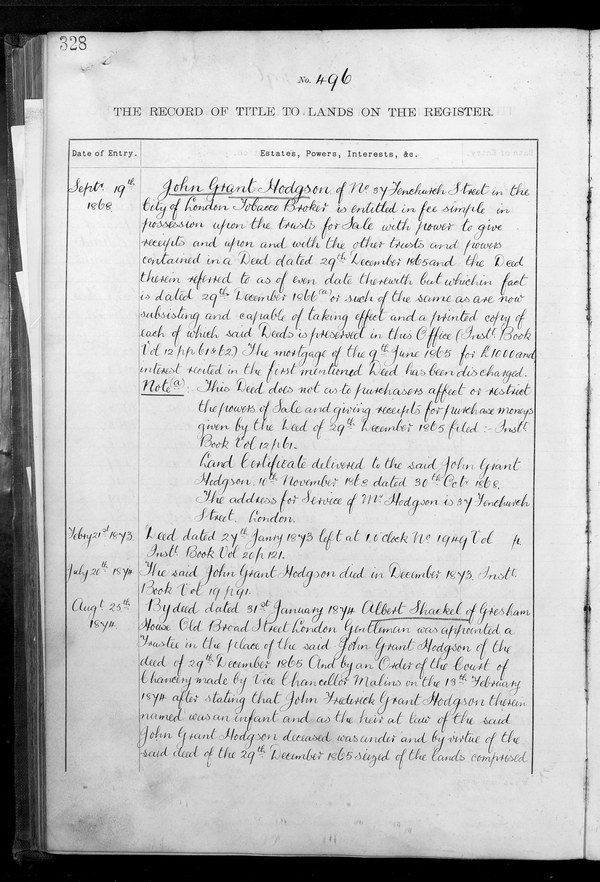 328
No. 496
THE RECORD OF TITLE TO LANDS ON THE REGISTER.
Date of Entry.
Estates, Powers, Interests, &c.
Septr. 19th
1868
John Grant Hodgson of No 37 Fenchurch Street in the
City of London Tobacco Broker is entitled in fee simple in
possession upon the trusts for Sale with power to give
receipts and upon and with the other trusts and powers
contained in a Deed dated 29th December 1865 and the Deed
therein referred to as of even date therewith but which in fact
is dated 29th December 1866 (a) or such of the same as are now
subsisting and capable of taking effect and a printed copy of
each of which said Deeds is preserved in this Office (Instt Book
Vol 12 pp 61 & 62) The mortgage of the 9th June 1865 for £1000 and
interest recited in the first mentioned Deed has been discharged.
Note (a): This Deed does not as to purchasers affect or restrict
the powers of Sale and giving receipts for purchase moneys
given by the Deed of 29th December 1865 filed :- Instt
Book Vol 12 p 61.
Land Certificate delivered to the said John Grant
Hodgson. 10th November 1868 dated 30th Octr 1868.
The address for Service of Mr Hodgson is 37 Fenchurch
Street. London.
Febry 21st 1873.
Deed dated 27th Janry 1873 left at 1 o'clock No 1949 Vol p
Instt Book Vol 20 p 121.
July 20th 1874
The said John Grant Hodgson died in December 1873. Instt
Book Vol 19 p 91.
Augt 25th
1874.
By deed dated 31st January 1874 Albert Shackel of Gresham
House Old Broad Street London Gentleman was appointed a
Trustee in the place of the said John Grant Hodgson of the
deed of 29th December 1865 And by an Order of the Court of
Chancery made by Vice Chancellor Malins on the 13th February
1874 after stating that John Frederick Grant Hodgson therein
named was an infant and as the heir at law of the said
John Grant Hodgson deceased was under and by virtue of the
said deed of the 29th December 1865 seized of the lands comprised